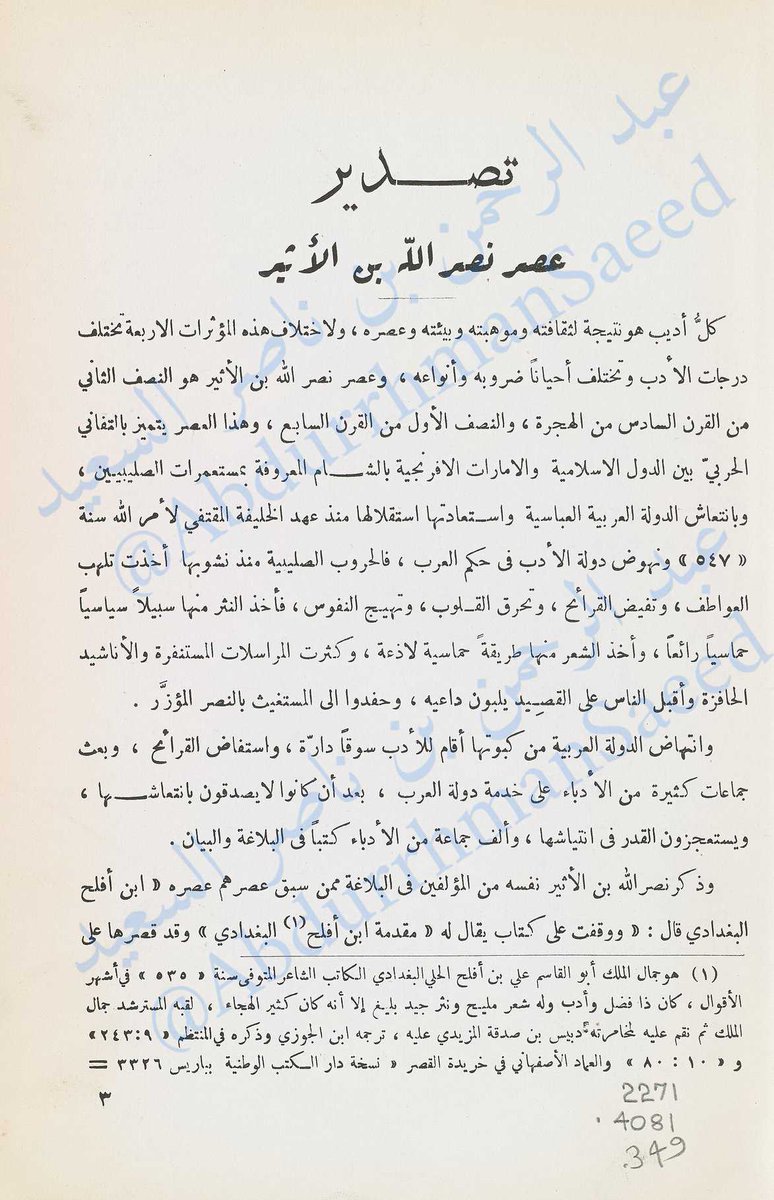 تصدير
عصر نصر الله بن الأثير
كلُّ أديب هو نتيجة لثقافته وموهبته وبيئته وعصره ، ولاختلاف هذه المؤثرات الاربعة تختلف
درجات الأدب وتختلف أحياناً ضروبه وأنواعه ، وعصر نصر الله بن الأثير هو النصف الثاني
من القرن السادس من الهجرة ، والنصف الأول من القرن السابع ، وهذا العصر يتميز بالتفاني
الحربيّ بين الدول الاسلامية والامارات الافرنجية بالشام المعروفة بمستعمرات الصليبيين ،
وبانتعاش الدولة العربية العباسية واستعادتها استقلالها منذ عهد الخليفة المقتفي لأمر الله سنة
« ٥٤٧ » ونهوض دولة الأدب فى حكم العرب ، فالحروب الصليبية منذ نشوبها أخذت تلهب
العواطف ، وتفيض القرائح ، وتحرق القلوب ، وتهيج النفوس ، فأخذ النثر منها سبيلاً سياسياً
حماسياً رائعاً ، وأخذ الشعر منها طريقةً حماسية لاذعة ، وكثرت المراسلات المستنفرة والأناشيد
الحافزة وأقبل الناس على القصِيد يلبون داعيه ، وحفدوا الى المستغيث بالنصر المؤزَّر .
وانتهاض الدولة العربية من كبوتها أقام للأدب سوقاً دارّة ، واستفاض القرائح ، وبعث
جماعات كثيرة من الأدباء على خدمة دولة العرب ، بعد أن كانوا لا يصدقون بانتعاشها ،
ويستعجزون القدر فى انتياشها ، وألف جماعة من الأدباء كتباً فى البلاغة والبيان .
وذكر نصر الله بن الأثير نفسه من المؤلفين فى البلاغة ممن سبق عصرهم عصره « ابن أفلح
البغدادي قال : « ووقفت على كتاب يقال له « مقدمة ابن أفلح (١) البغدادي » وقد قصرها على
(١) هو جمال الملك أبو القاسم علي بن أفلح الحلي البغدادي الكاتب الشاعر المتوفى سنة « ٥٣٥ » في أشهر
الأقوال ، كان ذا فضل وأدب وله شعر مليح ونثر جيد بليغ إلا أنه كان كثير الهجاء ، لقبه المسترشد جمال
الملك ثم نقم عليه لمخامرته دبيس بن صدقة المزيدي عليه ، ترجمه ابن الجوزي وذكره في المنتظم « ٩:٢٤٣ »
و « ١٠ : ٨٠ » والعماد الأصفهاني في خريدة القصر « نسخة دار الكتب الوطنية بباريس ٣٣٢٦ =
٣
2271
. 4081
.349
عبد الرحمن بن ناصر السعيد
@AbdurrhmanSaeed
عبد الرحمن بن ناصر السعيد
@AbdurrhmanSaeed